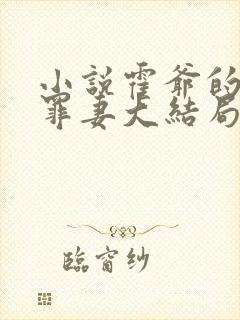 小説霍爺的
罪妻大結局
臨窗紗